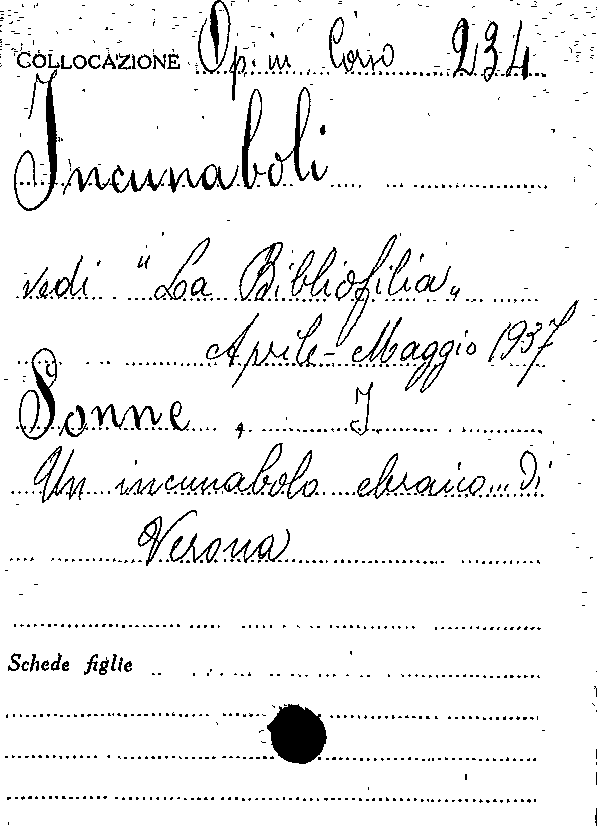 COLLOCAZIONE Op. in Corso 234
Incunaboli
vedi "La Bibliofilia„
Aprile-Maggio 1937
Sonne, I
Un incunabolo ebraico di
Verona
Schede figlie